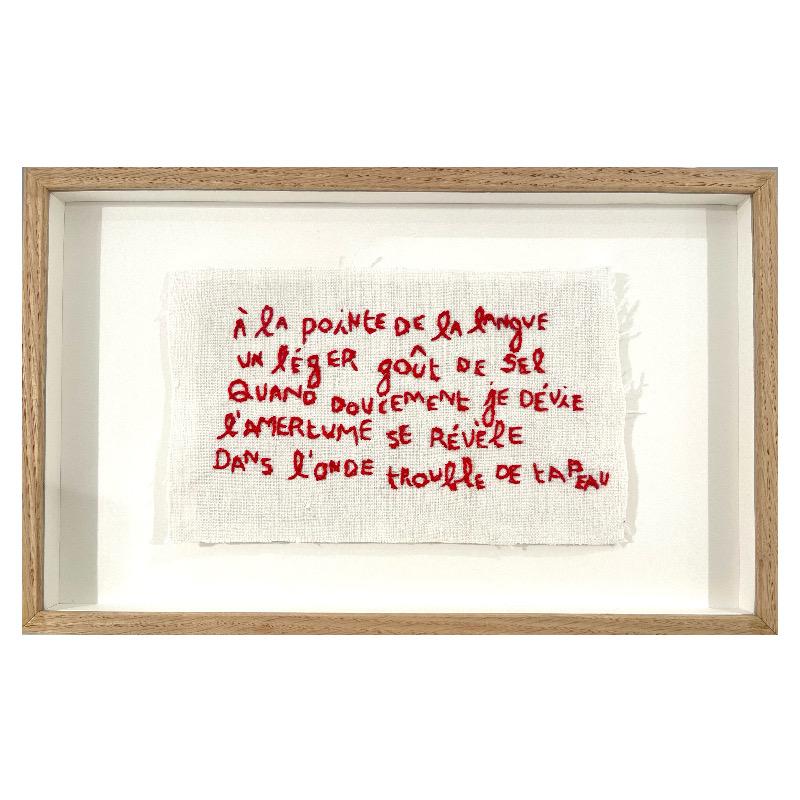 À la pointe de la langue
un léger goût de sel
Quand doucement je dévie
l'amertume se révèle
Dans l'onde trouble de ta peau